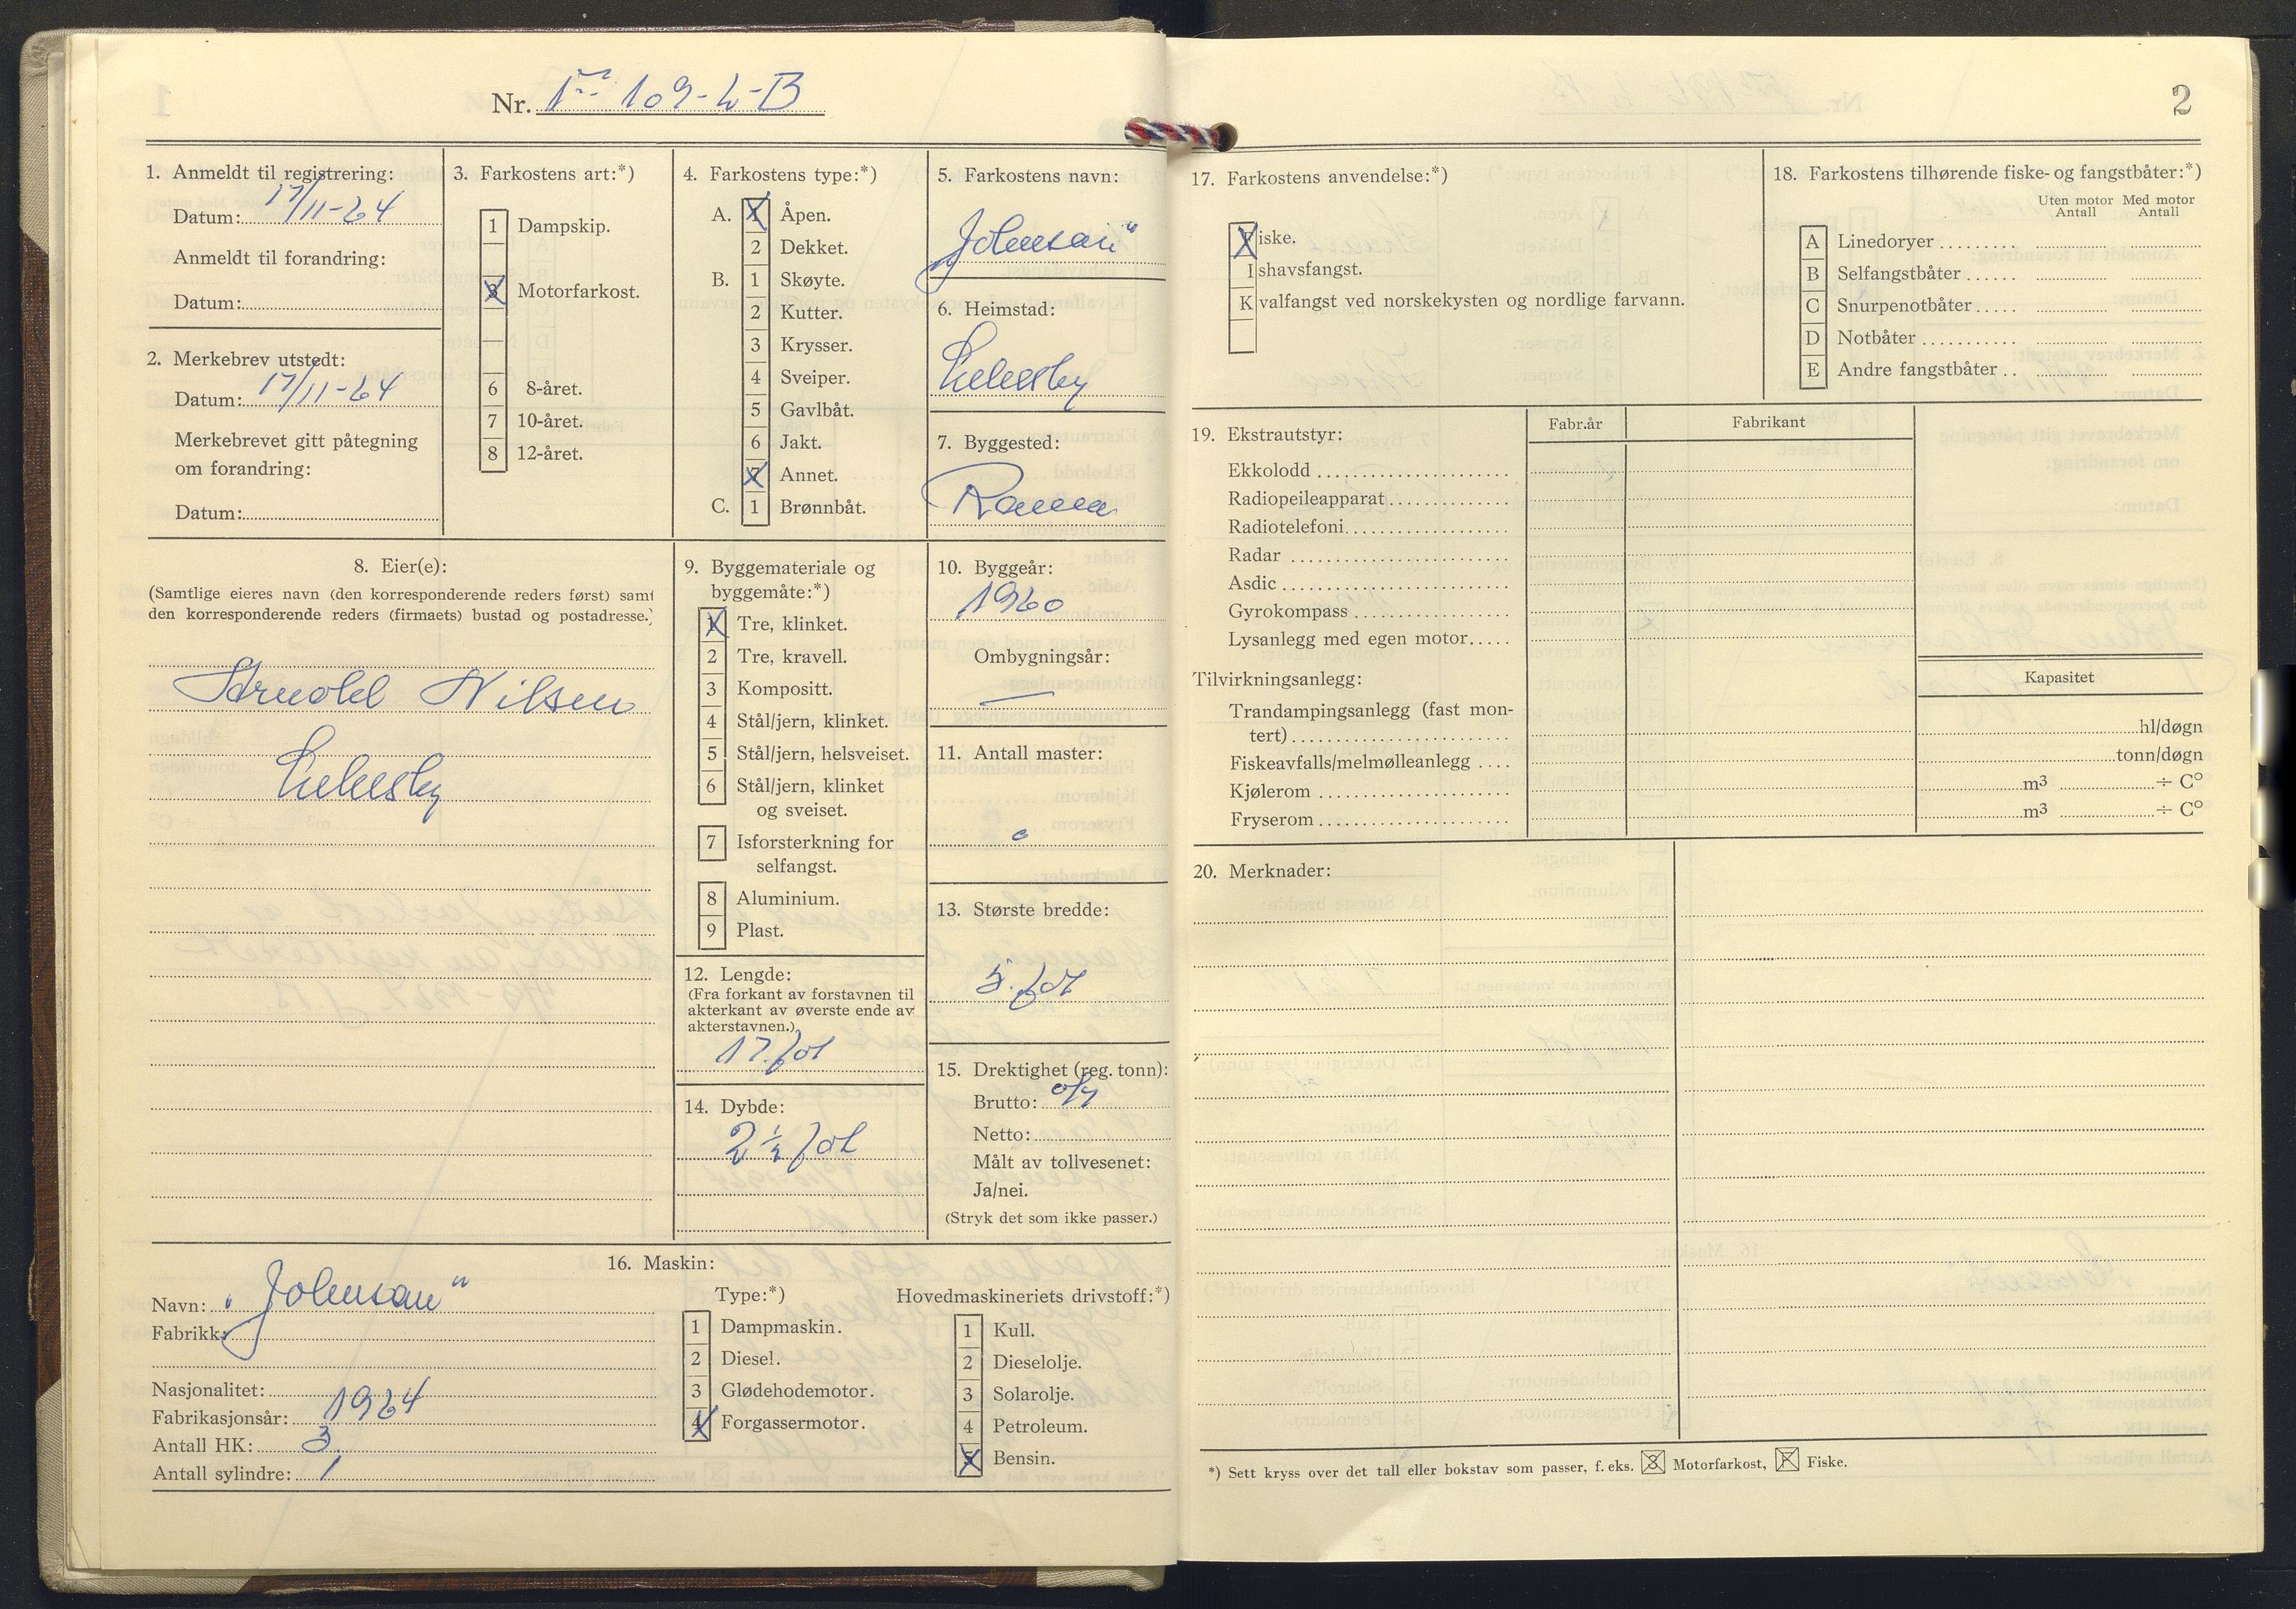 Nr. F 109-L-B
2
1. Anmeldt til registrering:
Datum: 17/11-64
Anmeldt til forandring:
Datum:
2. Merkebrev utstedt:
Datum: 17/11-64
Merkebrevet gitt påtegning
om forandring:
Datum:
3. Farkostens art:*)
1 Dampskip.
3 Motorfarkost.
6 8-året.
7 10-året.
8 12-året.
4. Farkostens type:*)
A. 1 Åpen.
2 Dekket.
B. 1 Skøyte.
2 Kutter.
3 Krysser.
4 Sveiper.
5 Gavlbåt.
6 Jakt.
7 Annet.
C. 1 Brønnbåt.
5. Farkostens navn:
Johnsan"
6. Heimstad:
Lebesby
7. Byggested:
Rana
8. Eier(e):
(Samtlige eieres navn (den korresponderende reders først) samt
den korresponderende reders (firmaets) bustad og postadresse.)
Arnold Nilsen
Lebesby
9. Byggemateriale og
byggemåte:*)
1 Tre, klinket.
2 Tre, kravell.
3 Kompositt.
4 Stål/jern, klinket.
5 Stål/jern, helsveiset.
6 Stål/jern, klinket
og sveiset.
7 Isforsterkning for
selfangst.
8 Aluminium.
9 Plast.
10. Byggeår:
1960
Ombygningsår:
—
11. Antall master:
0
12. Lengde:
(Fra forkant av forstavnen til
akterkant av øverste ende av
akterstavnen.)
17. fot
13. Største bredde:
5. fot
14. Dybde:
2 ½ fot
15. Drektighet (reg. tonn):
Brutto:
Netto:
Målt av tollvesenet:
Ja/nei.
(Stryk det som ikke passer.)
16. Maskin:
Navn: "Johnsan"
Fabrikk:
Nasjonalitet:
Fabrikasjonsår: 1964
Antall HK: 3.
Antall sylindre: 1
Type:*)
1 Dampmaskin.
2 Diesel.
3 Glødehodemotor.
4 Forgassermotor.
Hovedmaskineriets drivstoff:*)
1 Kull.
2 Dieselolje.
3 Solarolje.
4 Petroleum.
5 Bensin.
17. Farkostens anvendelse:*)
Fiske.
Ishavsfangst.
Kvalfangst ved norskekysten og nordlige farvann.
18. Farkostens tilhørende fiske- og fangstbåter:*)
Uten motor Med motor
Antall Antall
A Linedoryer
B Selfangstbåter
C Snurpenotbåter
D Notbåter
E Andre fangstbåter
19. Ekstrautstyr:
Fabr.år Fabrikant
Ekkolodd
Radiopeileapparat
Radiotelefoni
Radar
Asdic
Gyrokompass
Lysanlegg med egen motor
Tilvirkningsanlegg:
Kapasitet
Trandampingsanlegg (fast mon-
tert) hl/døgn
Fiskeavfalls/melmølleanlegg tonn/døgn
Kjølerom m³ ÷ C°
Fryserom m³ ÷ C°
20. Merknader:
*) Sett kryss over det tall eller bokstav som passer, f. eks. 3 Motorfarkost, F Fiske.